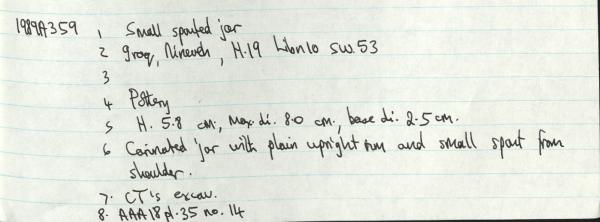 1989A359 1 Small spouted jar
2 Iraq, Nineveh, H.19 SW.53
3
4 Pottery
5 H. 5.8 cm., max.di. 8.0 cm., base di. 2.5 cm.
6 Carinated jar with plain upright rim and small spout from
shoulder.
7. CT's excav.
8. AAA 18 pl.35 no. 14